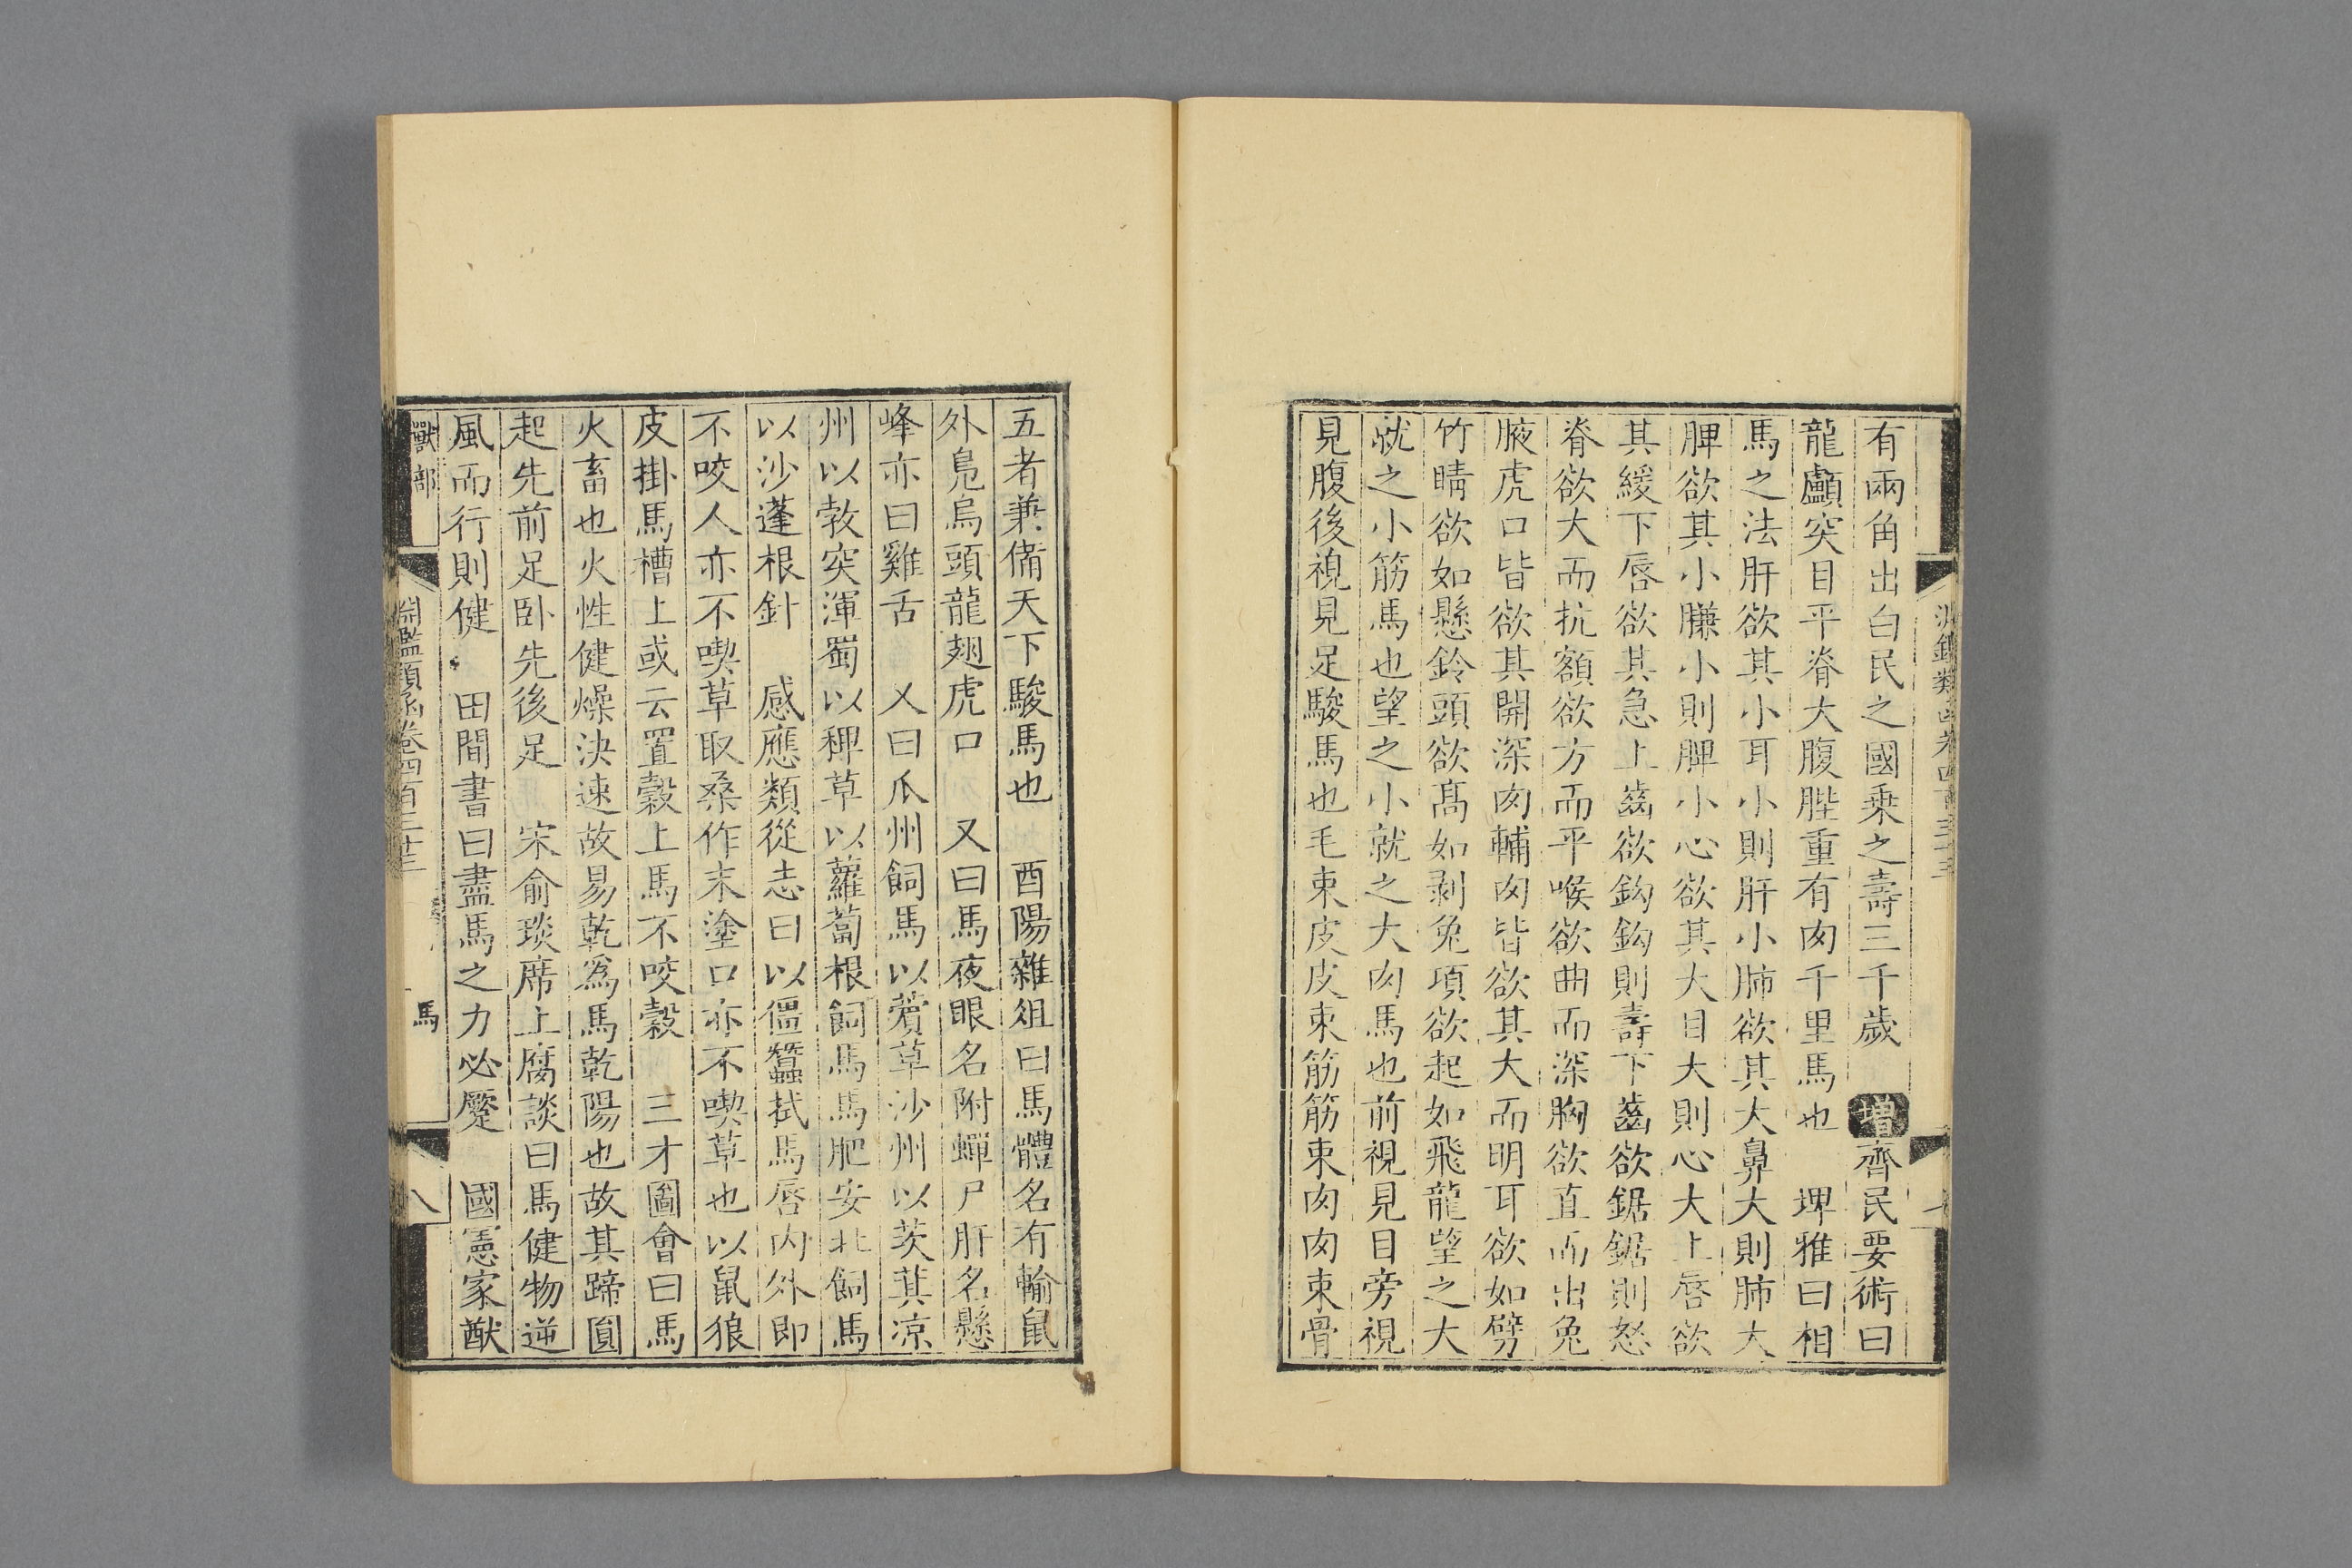 有兩角出白民之國乗之壽三千歲 增齊民要術曰
龍顱突目平脊大腹䏶重有肉千里馬也 埤雅曰相
馬之法肝欲其小耳小則肝小肺欲其大鼻大則肺大
脾欲其小膁小則脾小心欲其大目大則心大上唇欲
其緩下唇欲其急上齒欲鈎鈎則壽下齒欲鋸鋸則怒
脊欲大而抗額欲方而平喉欲曲而深胸欲直而出兔
腋虎口皆欲其開深肉輔肉皆欲其大而明耳欲如劈
竹睛欲如懸鈴頭欲髙如剥兔項欲起如飛龍望之大
就之小筋馬也望之小就之大肉馬也前視見目旁視
見腹後視見足駿馬也毛束皮皮束筋筋束肉肉束骨
五者兼備天下駿馬也 酉陽雜俎曰馬體名有輸鼠
外鳧烏頭龍翅虎口 又曰馬夜眼名附蟬尸肝名懸
峰亦曰雞舌 又曰瓜州飼馬以薲草沙州以茨萁凉
州以敦突渾蜀以稗草以蘿蔔根飼馬馬肥安北飼馬
以沙蓬根針 感應類從志曰以僵蠶拭馬唇内外即
不咬人亦不喫草取桑作末塗口亦不喫草也以鼠狼
皮掛馬槽上或云置穀上馬不咬穀 三才圖會曰馬
火畜也火性健燥決速故易乾爲馬乾陽也故其蹄圓
起先前足卧先後足 宋俞琰席上腐談曰馬健物逆
風而行則健 田間書曰盡馬之力必蹷 國憲家猷
獸部 淵鑑類函卷四百三十三 馬 八